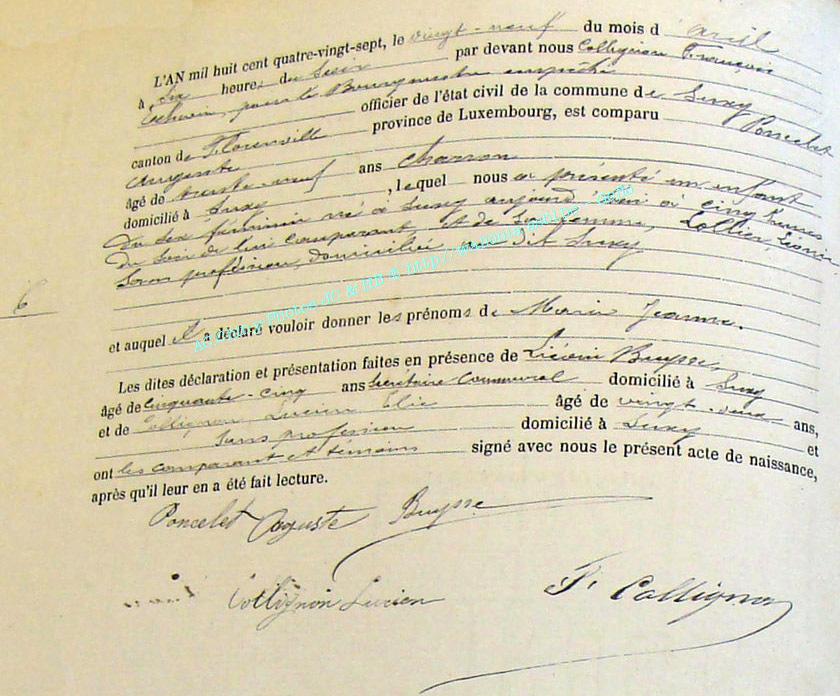 L'AN mil huit cent quatre-vingt-sept, le vingt-neuf du mois d avril
à six heures du soir par devant nous Collignon François
Echevin, pour le Bourgmestre empêché
officier de l'état civil de la commune de Suxy
canton de Florenville province de Luxembourg, est comparu Poncelet
Auguste
âgé de trente-neuf ans charron
domicilié à Suxy, lequel nous a présenté un enfant
du sex féminin né à Suxy aujourd'hui à cinq heures
du soir de lui comparant, et de sa femme,
sans profession, domiciliée au dit Suxy
6
et auquel il a déclaré vouloir donner les prénoms de Marie Jeanne.
Les dites déclaration et présentation faites en présence de Buysse,
âgé de cinquante-cinq ans secrétaire communal domicilié à Suxy
et de Collignon Lucien Elie âgé de vingt-deux ans,
sans profession domicilié à Suxy et
ont les comparant et témoins signé avec nous le présent acte de naissance,
après qu'il leur en a été fait lecture.
Poncelet Auguste Buysse
Collignon Lucien F. Collignon